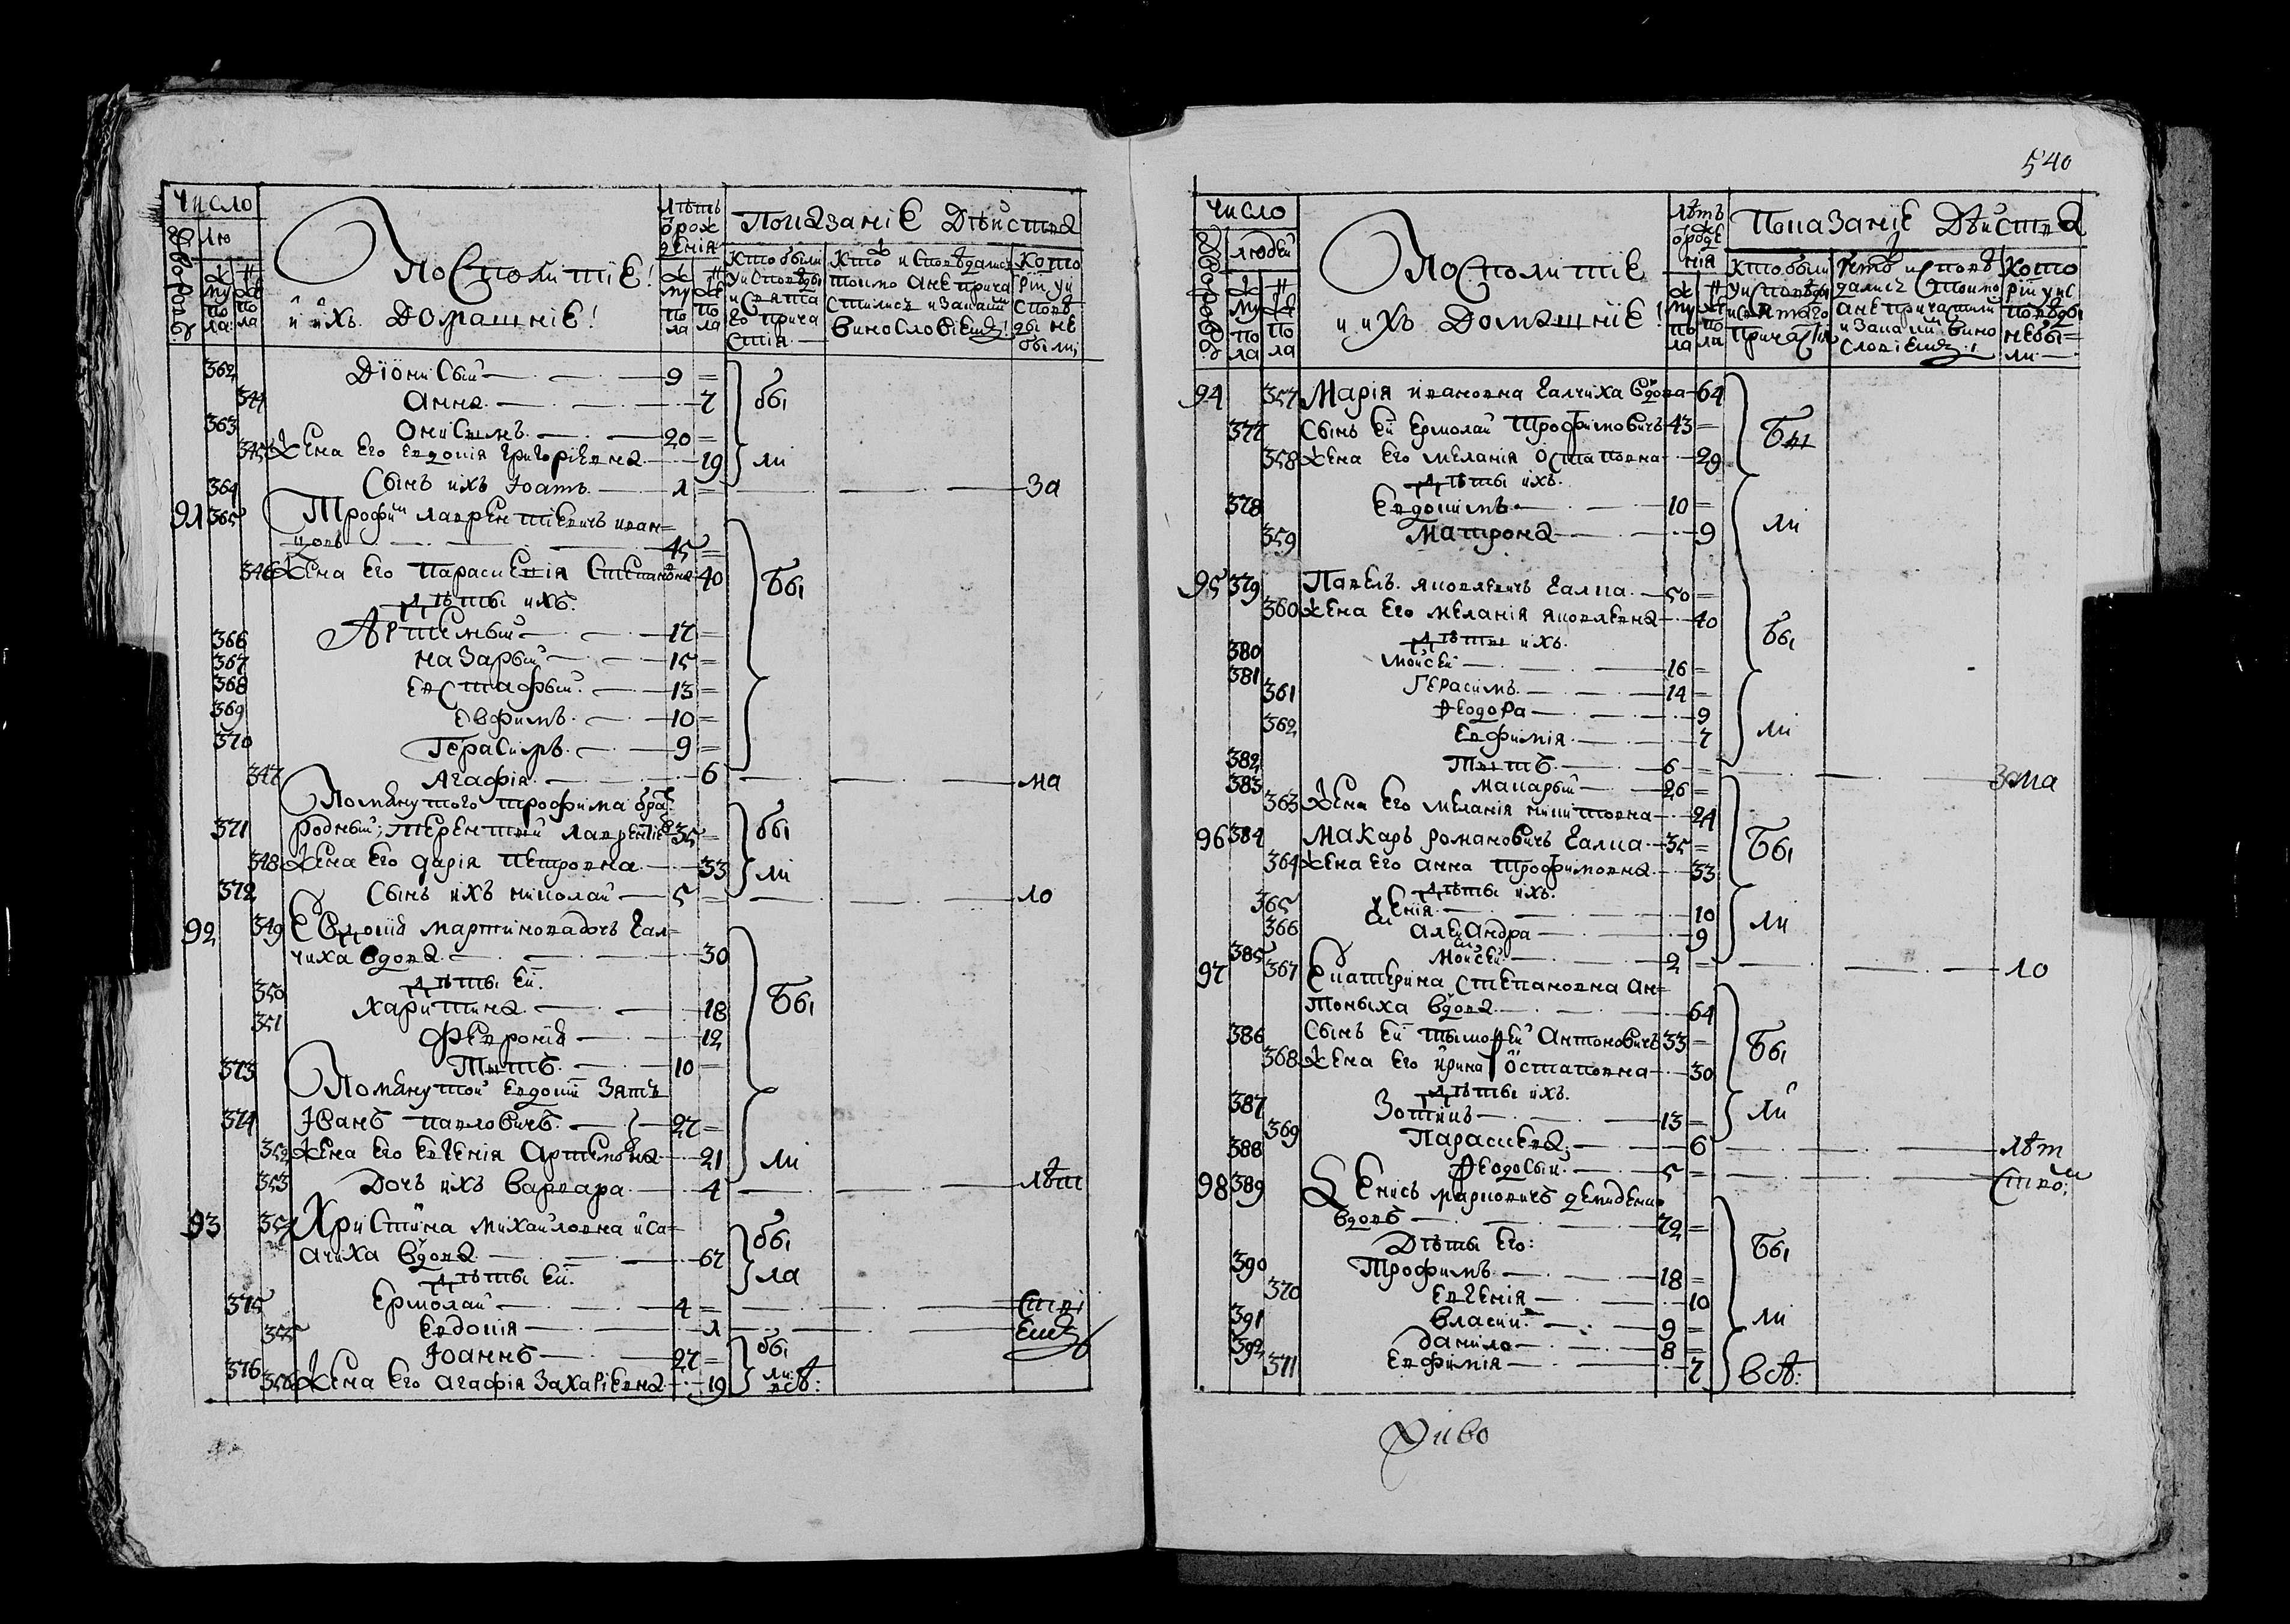 число
Дворовъ
Лю
Муж
по
ла
Же
по
ла
Посполитіе!
и ихъ Домашніе!
лѣтъ
ѿ рож
денія
Показаніе Дѣйства
Кто были
у исповѣды
и свята
го прича
стія
Кто исповѣдалис
токмо а не прича
стилися и закаим
винословіемъ!
кото
рій у и
спов
ды не
были
362 Діонисый 9 =
344 Анна 7
363 Онисимъ 20 =
345 Жена его Евдокія Григоріевна 19
бы
ли
364 Сынъ ихъ Іоанъ 1 = за
91 365 Трофим Лаврентіевичъ иван=
ковъ 45 =
346 Жена его Параскевія Степановна 40
дѣты ихъ.
366 Артемый 17 =
367 Назарый 15 =
368 Евстафый 13 =
369 Евфимъ 10 =
370 Герасимъ 9 =
Бы
347 Агафія 6 ма
Помянутого Трофима брат
371 родный; Терентый Лаврентіев 35 =
348 Жена его Дарія Петровна 33
бы
ли
372 Сынъ ихъ Николай 5 = ло
92 349 Евдокія Мартиновадочъ Гал=
чиха вдова 30
дѣты ей.
350 Харитина 18
351 Февронія 12
373 Титъ 10 =
Помянутой Евдокіи Зять
374 Іванъ Павловичъ 27 =
352 Жена его Евгенія Артемовна 21
Бы
ли
353 Дочъ ихъ Варвара 4 лѣт
93 354 Христина Михайловна иса=
ачиха вдова 67
дѣты ей.
бы
ла
375 Ермолай 4 = стві
355 Евдокія 1 емъ
376 Іоаннъ 27 =
356 Жена его Агафія Захаріевна 19
бы
ли
всѣ:
540
число
Дворовъ
людей
Муж
по
ла
Же
по
ла
Посполитіе
и ихъ Домашніе!
лѣтъ
ѿ рожде
нія
Показаніе Дѣйства
Кто были
у исповѣди
и святаго
причастія
кто исповѣ
дались токмо
а не причастили
и закаим вино
словіемъ.
кото
рій у ис
повѣды
не бы=
ли
94 357 Марія Ивановна Галчиха вдова 64
377 Сынъ ей Ермолай Трофимовичъ 43 =
358 Жена его Меланія Остаповна 29
дѣты ихъ.
378 Евдокимъ 10 =
359 Матрона 9
Бы
ли
95 379 Павелъ Яковлевичъ Галка 50 =
360 Жена его Меланія Яковлевна 40
дѣты ихъ.
380 Мойсей 16 =
381 Герасимъ 14 =
361 Ѳеодора 9
362 Евфимія 7
Бы
ли
382 Титъ 6 = зама
383 Макарый 26 =
363 Жена его Меланія Никитовна 24
96 384 Макаръ Романовичъ Галка 35 =
364 Жена его Анна Трофимовна 33
дѣты ихъ.
365 Ксенія 10
366 Александра 9
Бы
ли
385 Мойсей 2 = ло
97 367 Екатерина Степановна Ан=
тоныха вдова 64
386 Сынъ ей Тымофей Антоновичъ 33 =
368 Жена его Ирина Остаповна 30
дѣты ихъ.
387 Зотикъ 13 =
Бы
ли
369 Параскева 6 лѣт
388 Ѳеодосый 5 = ством:
98 389 Денисъ Марковичъ Демиденко
вдовъ 72 =
Дѣты его:
390 Трофимъ 18 =
370 Евгенія 10
391 Власий 9 =
392 Данило 8 =
371 Евфимія 7
Бы
ли
всѣ: